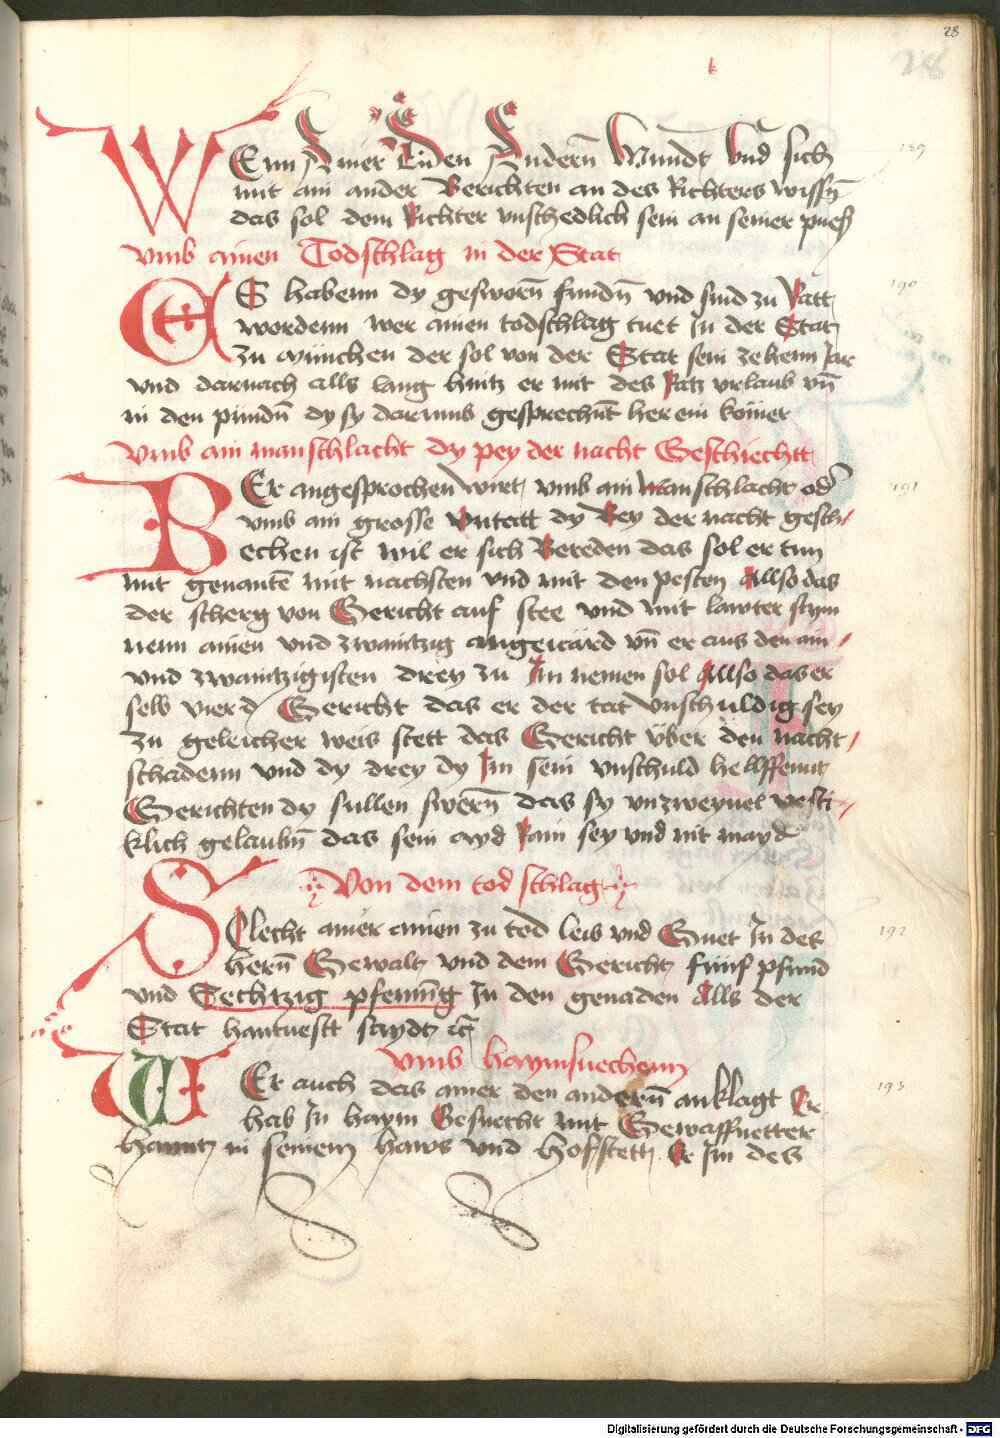 28
28
189
WEnn Ainer Ein den Andern̄ Wundt Und sich
mit ain ander Berichten an des Richters wissn̄
das sol dem Richter vnschedlich sein an seiner pues
Vmb ainen Todschlag in der Stat
190
ES habenn dy gesworn̄ fundn̄ vnd sind zu Ratt
wordenn wer ainen todschlag tuet In der Stat
zu München der sol von der Stat sein zehenn Jar
vnd darnach alls lang huntz er mit des Ratz vrlaub vn̄
in den pundn̄ dy sy darumb gesprechnt her ein kömer
Vmb ain manschlacht dy pey der nacht Geschiecht
191
WEr angesprochen wirt vmb ain manschlacht oder
vmb ain grosse Vntatt dy Bey der nacht gesch/
echen ist wil er sich Bereden das sol er tun
mit genantē mit nachsten vnd mit den pesten Allso das
der scherg von Gericht auf stee vnd mit lawter stym
nenn ainen vnd zwaintzig vn̄ er aus den ain/
vnd zwaintzigisten drey zu Im nemen sol Allso das er
selb vierd Gericht das er der tat vnschuldig sey
Zu geleicher weis stett das Gericht über den nacht/
schadenn vnd dy drey dy Im sein vnschuld hellffennt
Gerichten dy sullen swern̄ das sy vnzweyuel vesti/
klich gelaubn̄ das sein ayd Rain sey vnd nit mayd
Von dem tod schlag
192
SLlecht ainer ainen zu tod leib vnd Guet In des
hern̄ Gewalt vnd dem Gericht fünf pfund
vnd Sechtzig pfenn̄g In den genaden Alls der
Stat hantuestt saydt ꝛc
Vmb haymsuechenn
193
WEr auch das ainer den andern̄ anklagt Er
hab In haym Gesuecht mit Gewaffnetter
hanntz in seinem haws vnd hofstett Er Im des
Digitalisierung gefördert durch die Deutsche Forschungsgemeinschaft - DFG